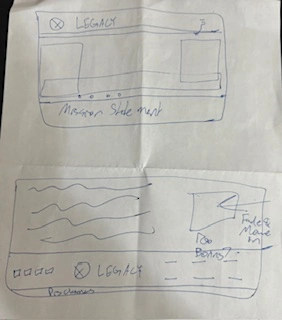 LEGACY
Mission Statement
Fade &
Move
in
LEGACY
Disclaimers